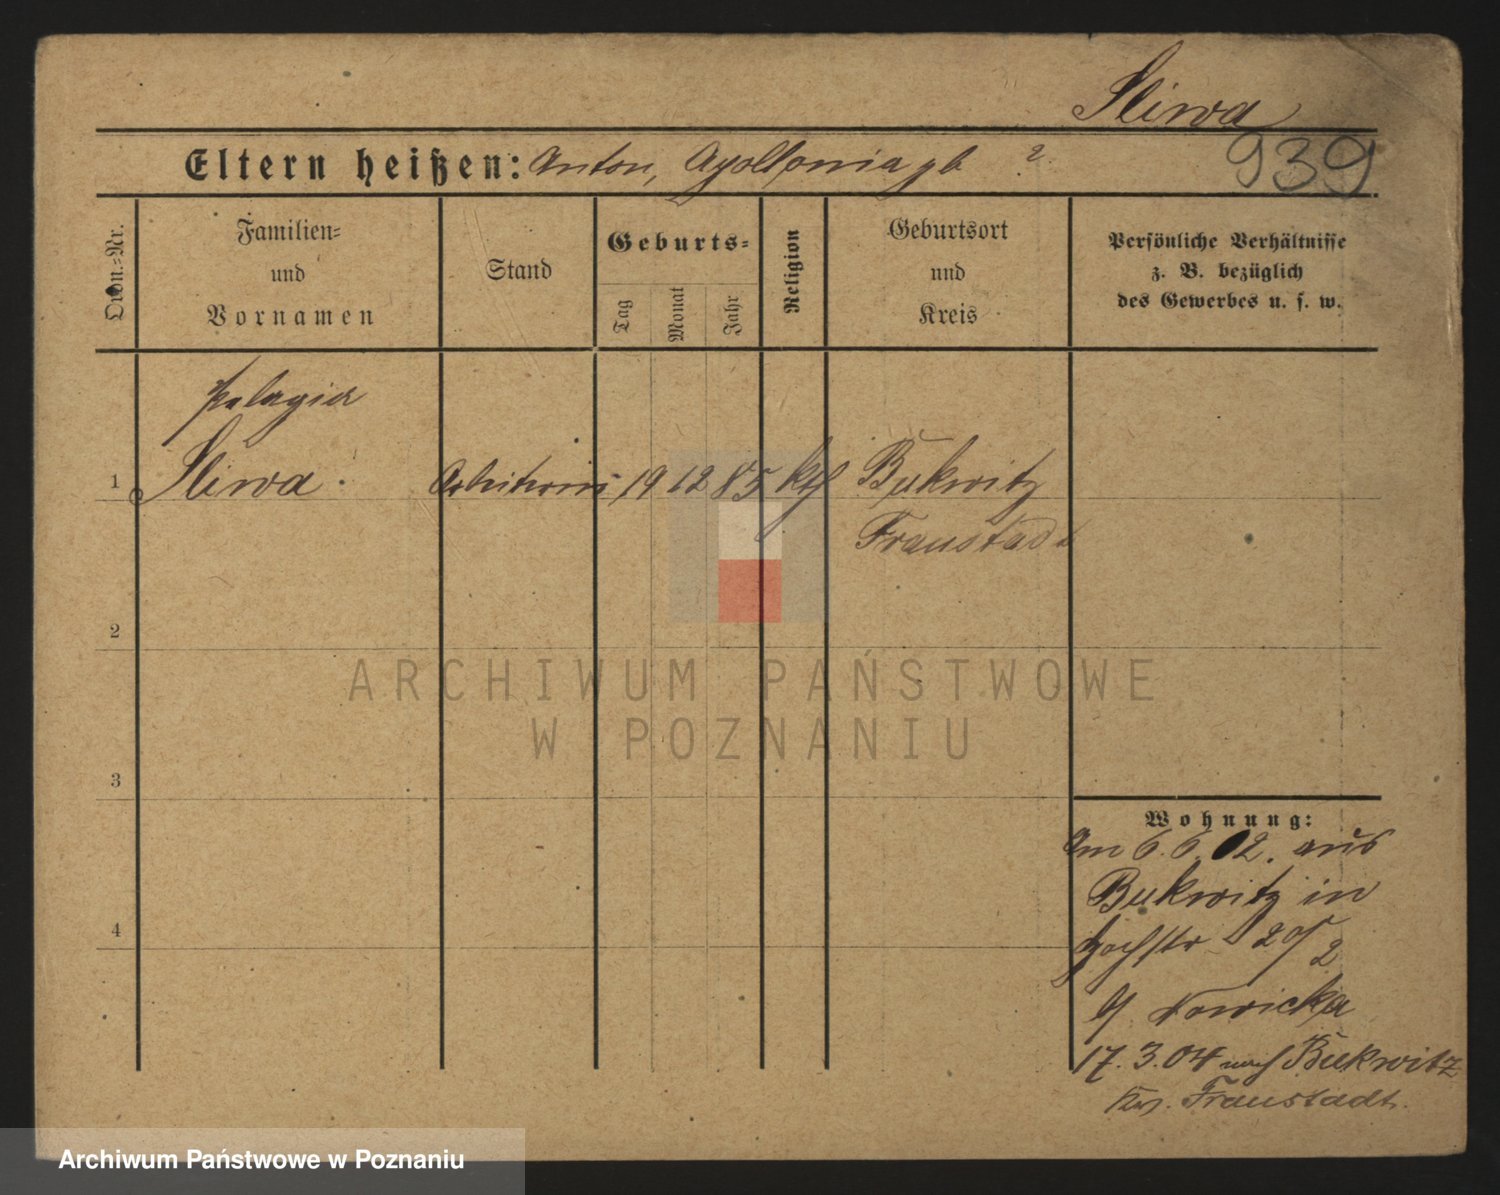 Sliwa
939
Eltern heißen: Anton, Apollonia gb ?
Ordn.-Nr.
Familien-
und
Vornamen
Stand
Geburts-
Tag
Monat
Jahr
Religion
Geburtsort
und
Kreis
Persönliche Verhältnisse
z. B. bezüglich
des Gewerbes u. s. w.
Pelagia
1 Sliwa. Arbeiterin 19 12 85 kth Bukwitz
Fraustadt
2
3
4
Wohnung:
Am 6.6.02. aus
Bukwitz in
Hochstr 20/2
Nowicka
17.3.04 nach Bukwitz
Krs. Fraustadt.
ARCHIWUM PAŃSTWOWE
W POZNANIU
Archiwum Państwowe w Poznaniu